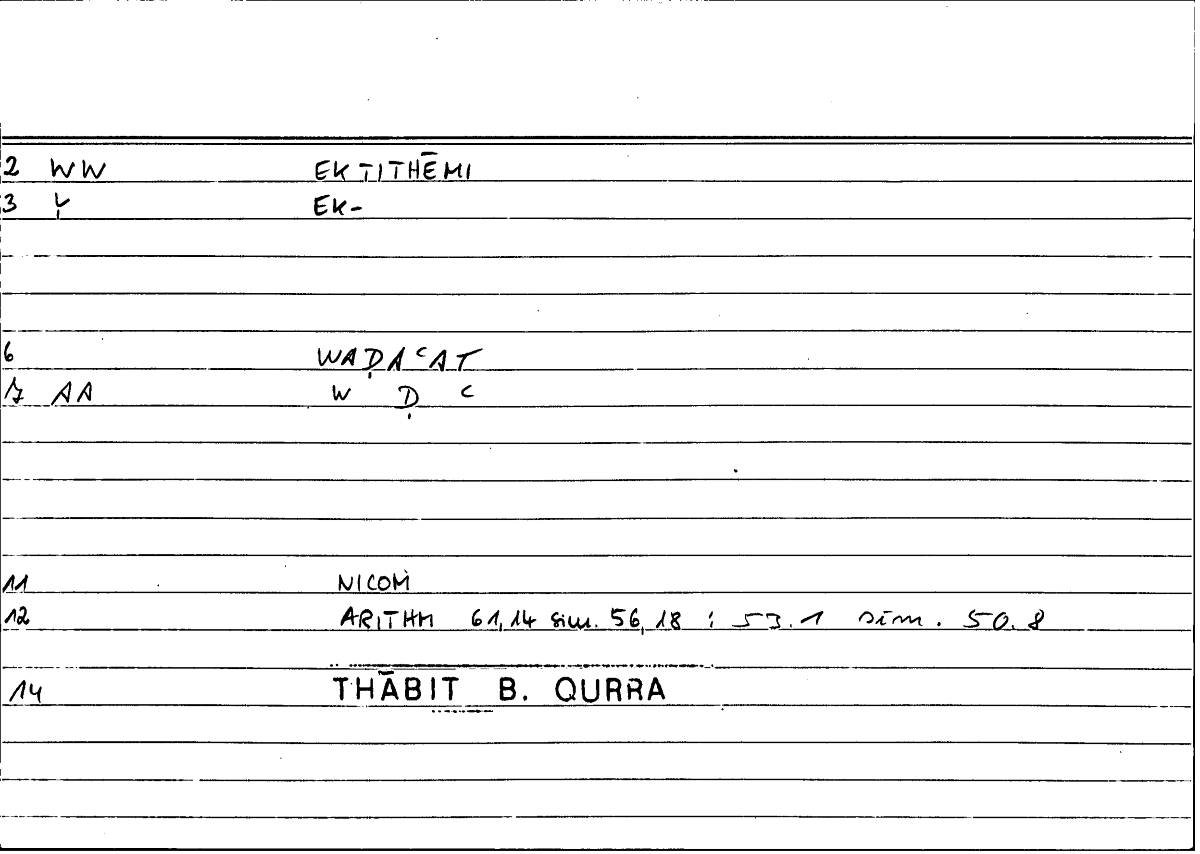 2 WW EKTITHĒMI
3 Ṿ EK-
6 WAḌAᶜAT
7 AA W Ḍ ᶜ
11 NICOM
12 ARITHM 61,14 sim. 56,18 : 53.1 sim. 50.8
14 THĀBIT B. QURRA